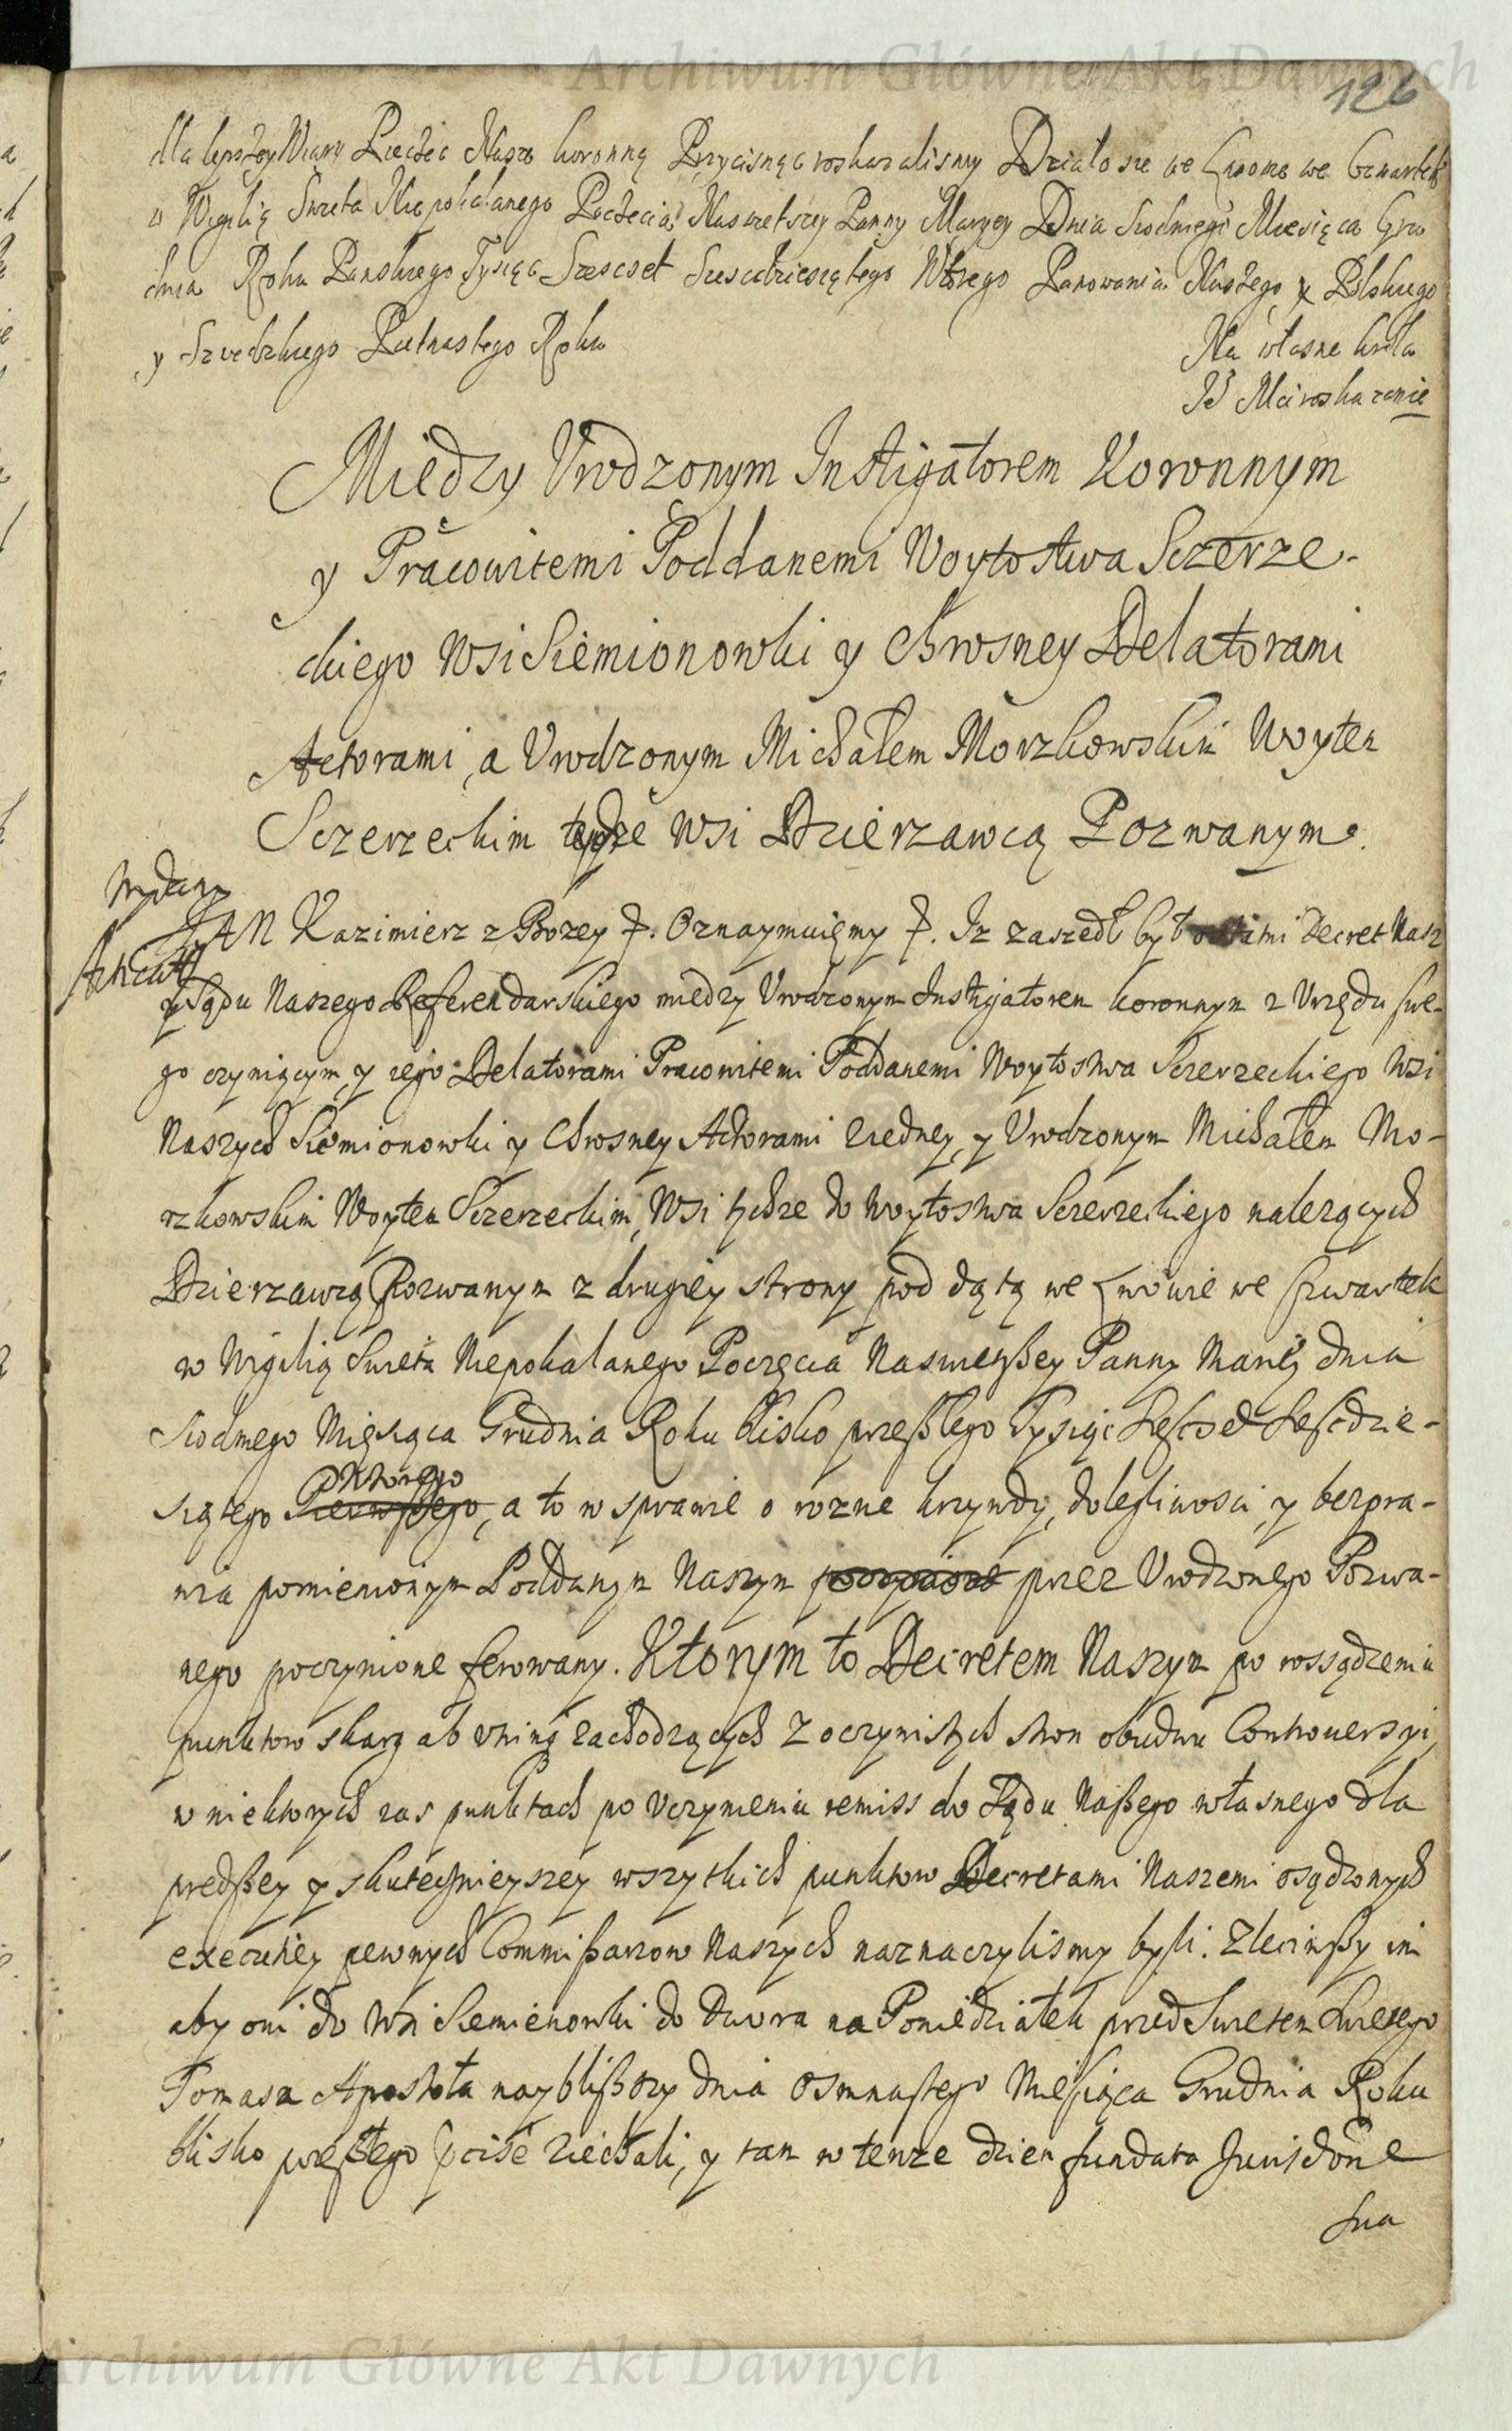 Archiwum Główne Akt Dawnych
126
dla lepszey Wiary Pieczęć Nasze koronną Przycisnąc roskazalismy Działo sie we Lwowie we Czwartek
w Wigilią Swieta Niepokalanego Poczecia Naswietszey Panny Maryey Dnia Siodmego Miesiąca Gru
dnia Roku Panskiego Tysiąc Szescset Szescdziesiątego Wtorego Panowania Naszego Polskiego
y Szwedzkiego Pietnastego Roku
Na własne krola
JE Mci roskazanie
Miedzy Vrodzonym Instigatorem Koronnym
y Pracowitemi Poddanemi Woytostwa Sczerze-
ckiego Wsi Siemionowki y Chrosney Delatorami
Actorami, a Vrodzonym Michałem Morzkowskim Woytem
Sczerzeckim teyze Wsi Dzierzawcą Pozwanym.
Wydany
JAN Kazimierz z Bozey P. Oznaymuięmy P. Iz zaszedł był Decret Nasz
z Sądu Naszego Referendarskiego miedzy Vrodzonym Instigatorem koronnym z Vrzędu swe-
go czyniącym, y iego Delatorami Pracowitemi Poddanemi Woytostwa Sczerzeckiego Wsi
Naszych Siemionowki y Chrosney Actorami ziedney, y Vrodzonym Michałem Mo-
rzkowskim Woytem Sczerzeckim, Wsi tychze do Woytostwa Sczerzeckiego nalezących
Dzierzawcą Pozwanym z drugiey strony pod datą we Lwowie we Czwartek
w Wigilią Swieta Niepokalanego Poczęcia Naswietßey Panny Mariey dnia
Siodmego Miesiąca Grudnia Roku blisko przeßłego Tysiąc Sescset Sescdzie-
siątego Pierwßego Wtorego, a to w sprawie o rozne krzywdy, dolegliwosci, y bezpra-
wia pomienionym Poddanym Naszym przez Vrodzonego Pozwa-
nego poczynione ferowany. Ktorym to Decretem Naszym po rossądzeniu
punktow skarg ab vtrinq zachodzących z oczywistych stron obudwu Controuersyi,
w niektorych zas punktach po Vczynieniu remiss do Sądu Naßego własnego dla
predßey y skutecznieyszey wszytkich punktow Decretami Naszemi osądzonych
executiey pewnych Commißarzow Naszych naznaczylismy byli. Zleciwßy im
aby oni do Wsi Siemienowki do Dwora na Poniedziałek przed Swietem Swietego
Tomasza Apostoła nayblißszy dnia osmnastego Miesiąca Grudnia Roku
blisko przeßłego ziechali, y tam w tenze dzien fundata Jurisdone
sua
Archiwum Główne Akt Dawnych